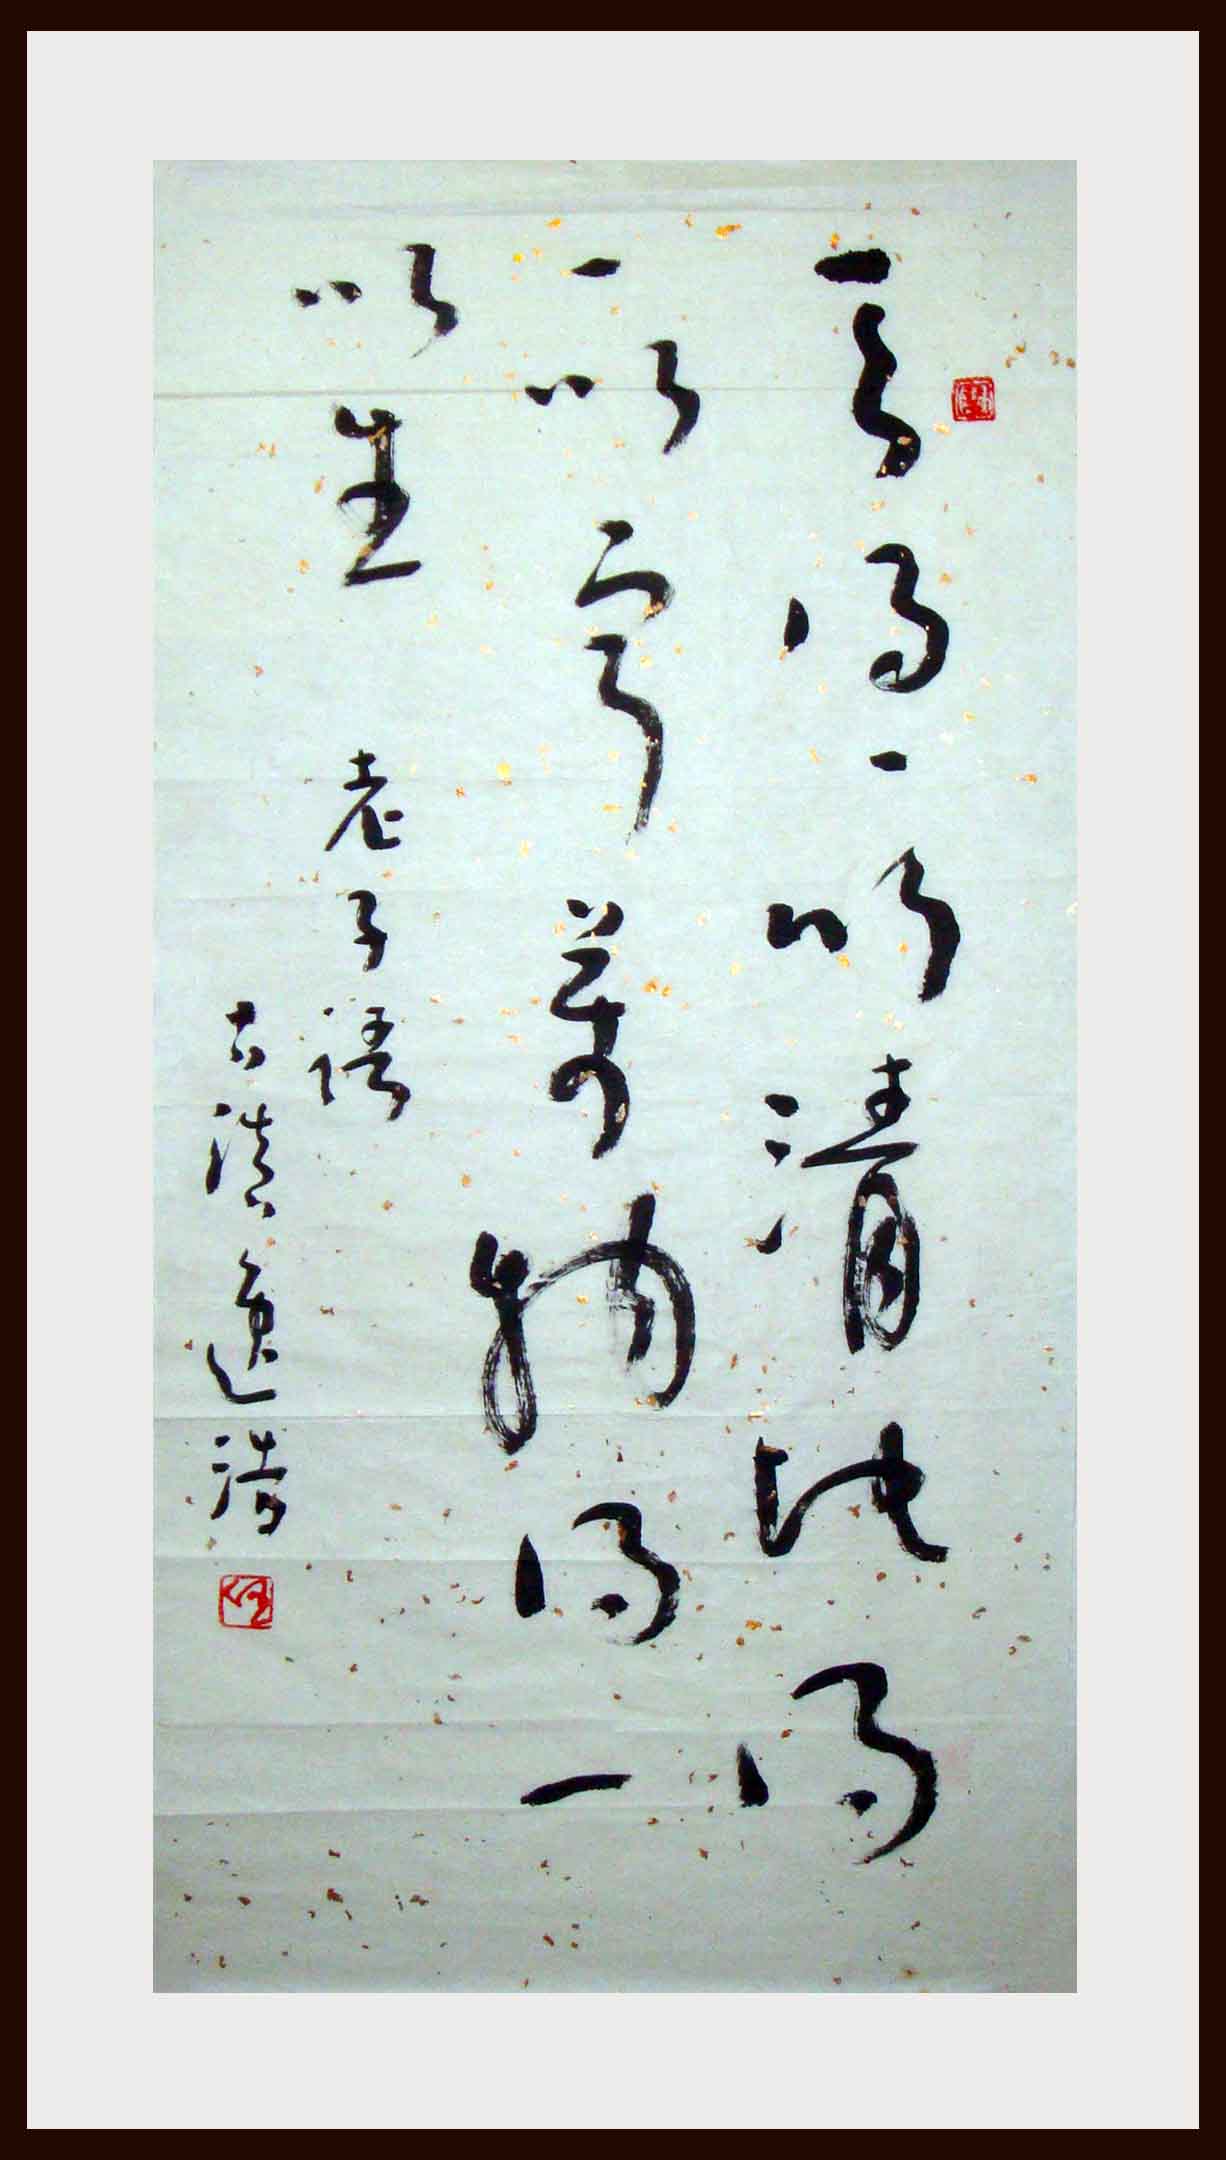 天得一以清地得
一以寧萬物得一
以生 老子語
古滇逸